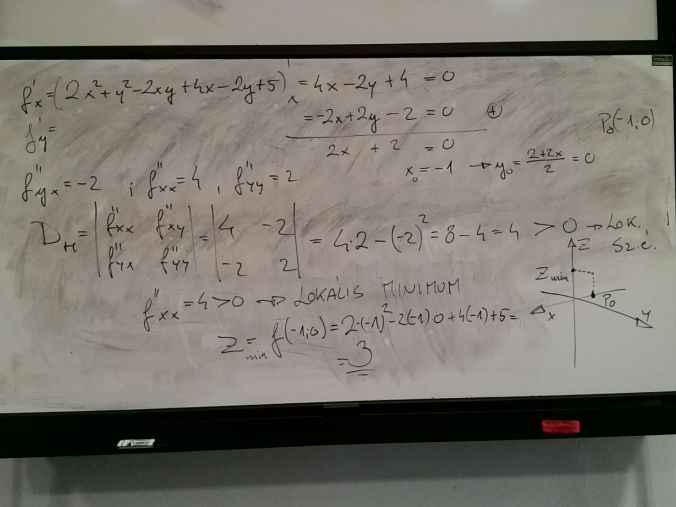 f'x = (2x² + y² - 2xy + 4x - 2y + 5)'x = 4x - 2y + 4 = 0
f'y = = -2x + 2y - 2 = 0 ⊕
2x + 2 = 0
P₀(-1;0)
x₀ = -1 → y₀ = (2+2x)/2 = 0
f''yx = -2 ; f''xx = 4 , f''yy = 2
D_H = |f''xx f''xy; f''yx f''yy| = |4 -2; -2 2| = 4·2 - (-2)² = 8 - 4 = 4 > 0 → LOK.
SZ.É.
f''xx = 4 > 0 → LOKÁLIS MINIMUM
Z_min = f(-1;0) = 2·(-1)² - 2(-1)·0 + 4(-1) + 5 =
= 3
Z
Z_min
P₀
x
y